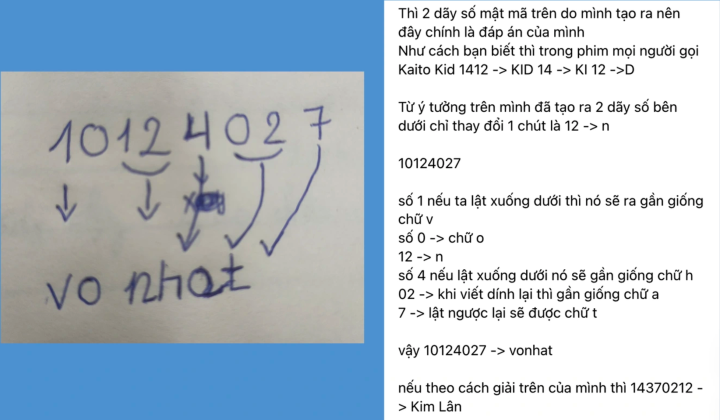 10124027
vo nhat
Thì 2 dãy số mật mã trên do mình tạo ra nên
đây chính là đáp án của mình
Như cách bạn biết thì trong phim mọi người gọi
Kaito Kid 1412 -> KID 14 -> KI 12 ->D
Từ ý tưởng trên mình đã tạo ra 2 dãy số bên
dưới chỉ thay đổi 1 chút là 12 -> n
10124027
số 1 nếu ta lật xuống dưới thì nó sẽ ra gần giống
chữ v
số 0 -> chữ o
12 -> n
số 4 nếu lật xuống dưới nó sẽ gần giống chữ h
02 -> khi viết dính lại thì gần giống chữ a
7 -> lật ngược lại sẽ được chữ t
vậy 10124027 -> vonhat
nếu theo cách giải trên của mình thì 14370212 -
> Kim Lân